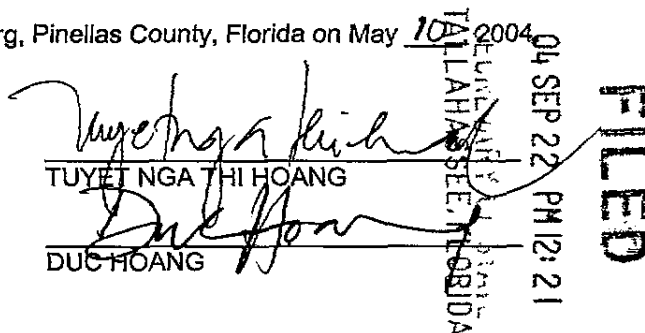 rg, Pinellas County, Florida on May 10, 2004
TUYET NGA THI HOANG
DUC HOANG
04 SEP 22 PM 12:21
TALLAHASSEE, FLORIDA
FILED